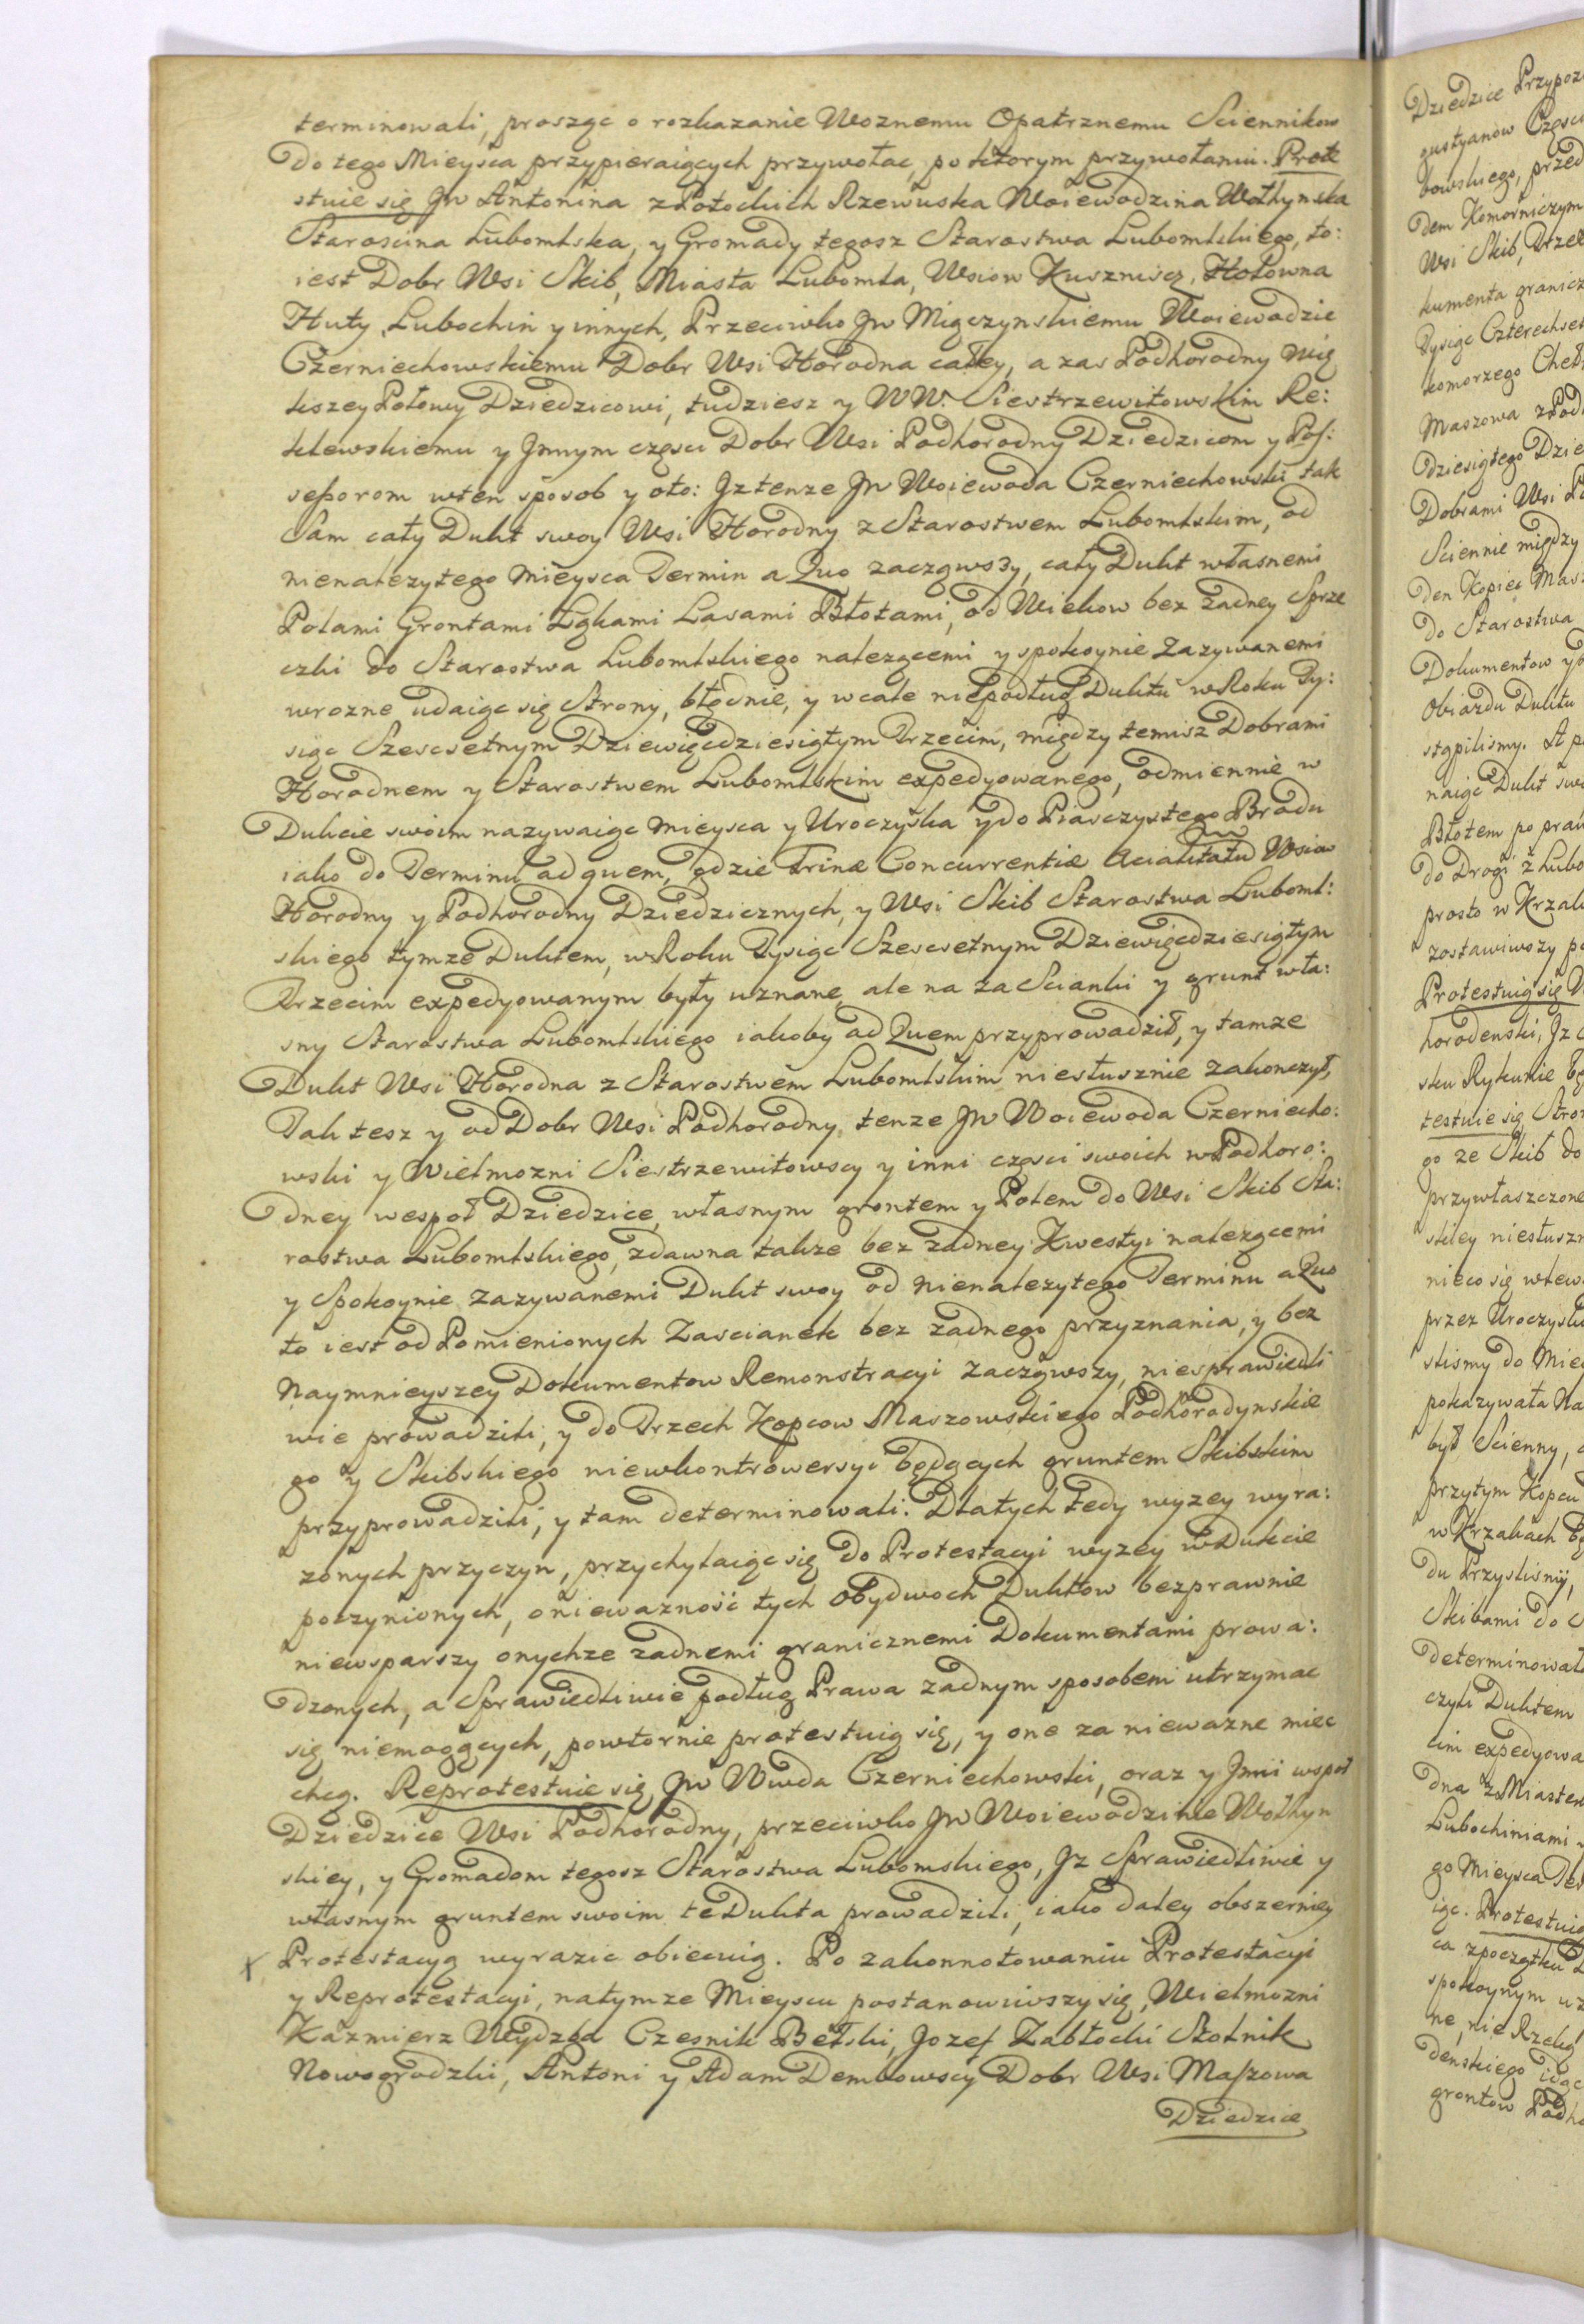 terminowali, prosząc o rozkazanie Woznemu Opatrznemu Sciennikow
Do tego Mieysca przypieraiących przywołac, po ktorym przywołaniu. Prote
stuie się JW Antonina z Potockich Rzewuska Woiewodzina Wołhynska
Starościna Lubomlska, y Gromady tegosz Starostwa Lubomlskiego, to:
iest Dobr Wsi Skib, Miasta Lubomla, Wsiow Kuszniscz, Hołowna
Huty, Lubochin y innych, Przeciwko JW Miączynskiemu Woiewodzie
Czerniechowskiemu Dobr Wsi Horodna całey, a zas Podhorodny wię
kszey Połowy Dziedzicowi, tudziesz y WW. Siestrzewitowskim Re:
klewskiemu y Jnnym częsci Dobr Wsi Podhorodny Dziedzicom y Pos:
sessorom wten sposob y oto: Jz tenze JW Woiewoda Czerniechowski tak
Sam cały Dukt swoy Wsi Horodny z Starostwem Lubomlskim, od
nienalezytego Mieysca Termin a Quo zacząwszy, cały Dukt własnemi
Polami Grontami Łąkami Lasami Błotami, od Wiekow bez zadney Sprze
czki do Starostwa Lubomlskiego nalezącemi y spokoynie Zazywanemi
wrozne udaiąc się Strony, błędnie, y wcale niepodług Duktu wRoku Ty:
siąc Szescsetnym Dziewięcdziesiątym Trzecim, między temisz Dobrami
Horodnem y Starostwem Lubomlskim expedyowanego, odmiennie w
Dukcie swoim nazywaiąc Mieysca y Uroczyska y do Piasczystego Brodu
iako do Terminu ad quem, gdzie Trinæ Concurrentiæ Wsiow
Horodny y Podhorodny Dziedzicznych, y Wsi Skib Starostwa Luboml:
skiego tymze Duktem, wRoku Tysiąc Szescsetnym Dziewięcdziesiątym
Trzecim expedyowanym były uznane, ale na za Scianki y grunt wła:
sny Starostwa Lubomlskiego iakoby ad Quem przyprowadził, y tamze
Dukt Wsi Horodna z Starostwem Lubomlskim niesłusznie zakonczył,
Tak tesz y od Dobr Wsi Podhorodny, tenze JW Woiewoda Czerniecho:
wski y Wielmozni Siestrzewitowscy y inni częsci swoich w Podhoro:
dney wespoł Dziedzice, własnym grontem y Polem do Wsi Skib Sta:
rostwa Lubomlskiego, zdawna takze bez zadney Kwestyi nalezącemi
y Spokoynie zazywanemi Dukt swoy od nienalezytego Terminu a Quo
to iest od Pomienionych Zascianek bez zadnego przyznania, y bez
Naymnieyszey Dokumentow Remonstracyi zacząwszy, niesprawiedli
wie prowadzili, y do Trzech Kopcow Maszowskiego Podhorodynskie
go y Skibskiego niewkontrowersyi będących gruntem Skibskim
przyprowadzili, y tam determinowali. Dla tych tedy wyzey wyra:
zonych przyczyn, przychylaiąc się do Protestacyi wyzey w Dukcie
poczynionych, o niewaznośc tych obydwoch Duktow bezprawnie
niewsparszy onychze zadnemi granicznemi Dokumentami prowa:
dzonych, a Sprawiedliwie podług Prawa zadnym sposobem utrzymac
się niemogących, powtornie protestuią się, y one za niewazne miec
chcą. Reprotestuie się JW Wwda Czerniechowski, oraz y Jnni wspoł
Dziedzice Wsi Podhorodny, przeciwko JW Woiewodzinie Wołhyn
skiey, y Gromadom tegosz Starostwa Lubomskiego, Jz Sprawiedliwie y
własnym gruntem swoim te Dukta prowadzili, iako daley obszerniey
Protestacyą wyrazic obiecuią. Po zakonnotowaniu Protestacyi
y Reprotestacyi, natymze Mieyscu postanowiwszy się, Wielmozni
Kazmierz Wydzga Czesnik Bełski, Jozef Zabłocki Stolnik
Nowogrodzki, Antoni y Adam Dembowscy Dobr Wsi Maszowa
Dziedzice
Dziedzice Przypoz
gustyanow Częsci
bowskiego, przed
dem Komorniczym
Wsi Skib, Trzec
kumenta granicz
Tysiąc Czterechset
komorzego Cheł
Maszowa z Pod
dziesiątego Dzie
Dobrami Wsi Po
Sciennie między
den Kopiec Masz
do Starostwa
Dokumentow y
Obiazdu Duktu
stąpilismy. A p
naiąc Dukt swo
Błotem po praw
do Drogi z Lubo
prosto w Krzak
zostawiwszy po
Protestuią się W
horodenski, Jz
sku Rykunie bę
testuie się Stron
go ze Skib do
przywłaszczone
skiey niesłuszn
nieco się wlew
przez Uroczysk
slismy do Mie
pokazywała Na
był Scienny,
przytym Kopcu
w Krzakach bę
du Przyslismy,
Skibami do
determinował
czyli Duktem
kim expedyowa
dna z Miastem
Lubochiniami
go Mieysca Ter
iąc. Protestuie
ca zpoczątku
spokoynym uz
ne, nie Rzeką
denskiego idąc
grontow Podho